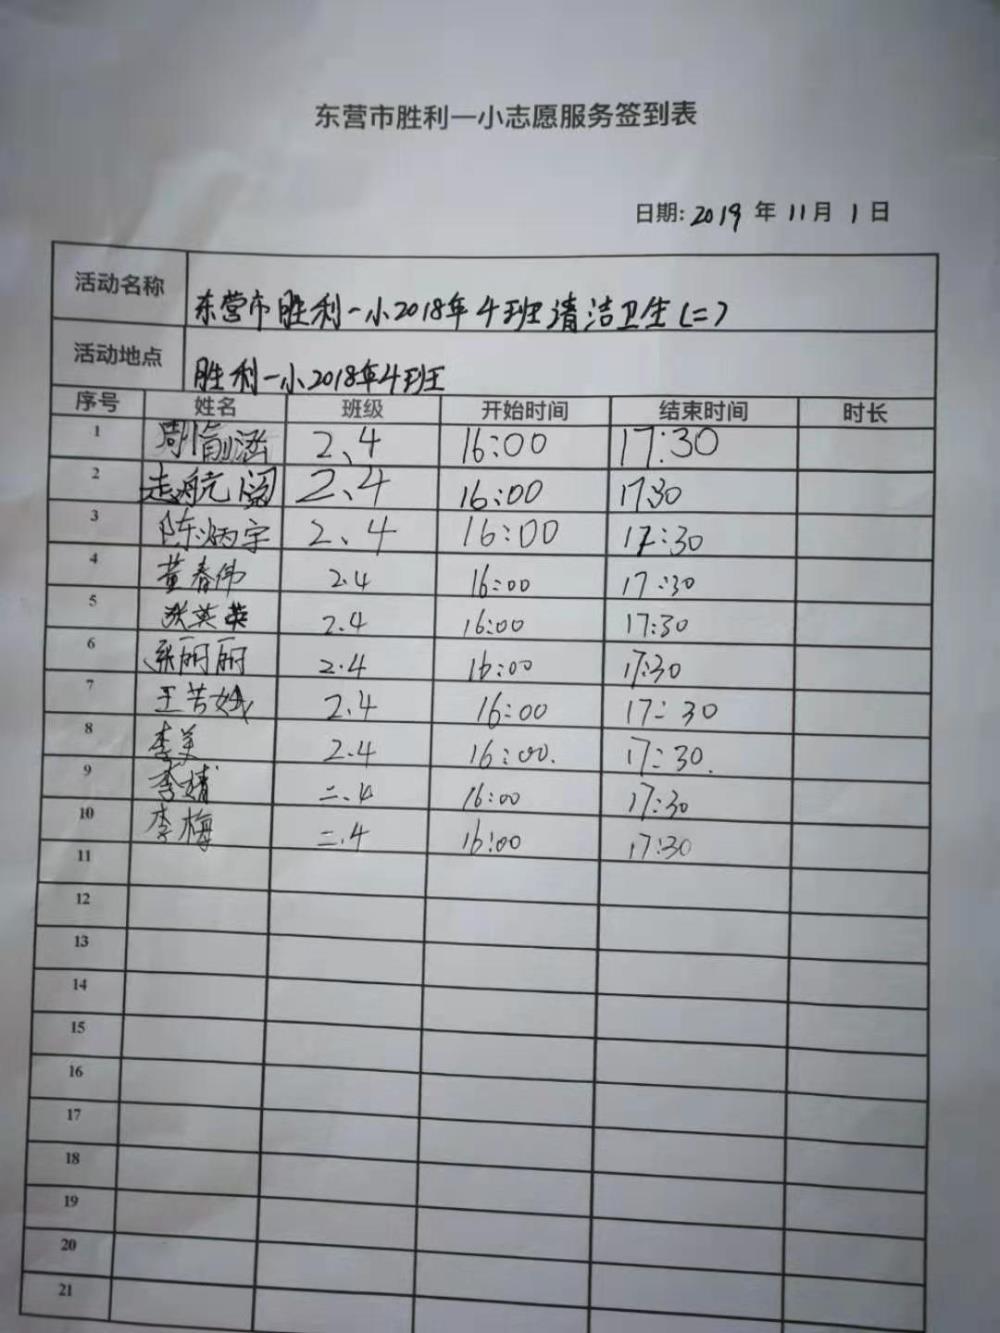 东营市胜利一小志愿服务签到表
日期: 2019 年 11 月 1 日
活动名称 东营市胜利一小2018年4班清洁卫生(二)
活动地点 胜利一小2018年4班
序号 姓名 班级 开始时间 结束时间 时长
1 涵 2、4 16:00 17:30
2 航 2、4 16:00 1730
3 陈炳宇 2、4 16:00 17:30
4 董春伟 2.4 16:00 17:30
5 张英英 2.4 16:00 17:30
6 张丽丽 2.4 16:00 17:30
7 王 2.4 16:00 17:30
8 李美 2.4 16:00. 17:30.
9 李婧 二、4 16:00 17:30
10 李梅 二.4 16:00 17:30
11
12
13
14
15
16
17
18
19
20
21